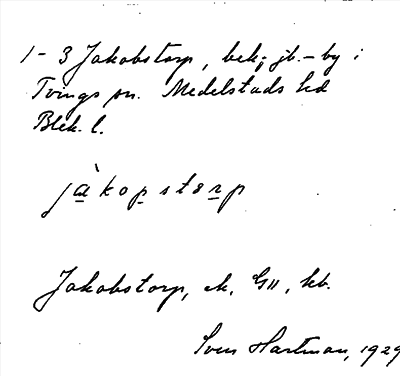 1-3 Jakobstorp, bek; jb.-by i
Tvings sn. Medelstads hd
Blek. l.
jàkopstorp
Jakobstorp, ek, GII, kb.
Sven Hartman, 1929